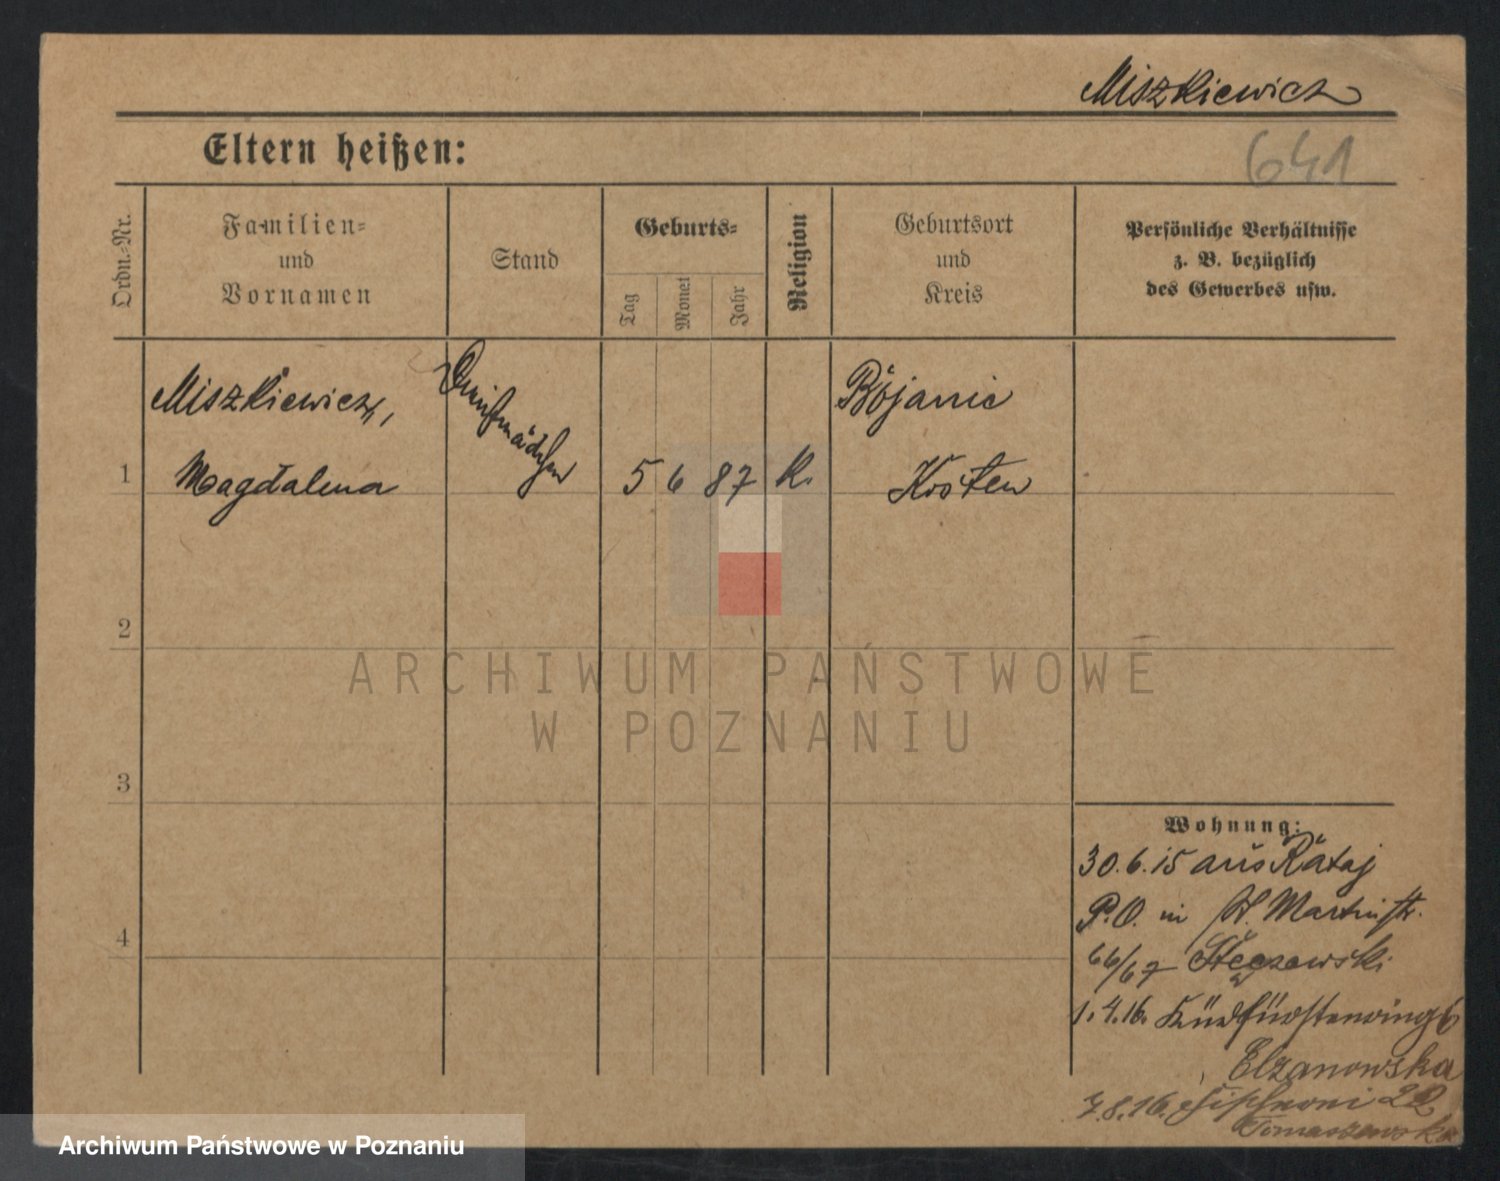 Miszkiewicz
641
Eltern heißen:
Ordn.-Nr.
Familien-
und
Vornamen
Stand
Geburts-
Tag
Monat
Jahr
Religion
Geburtsort
und
Kreis
Persönliche Verhältnisse
z. B. bezüglich
des Gewerbes usw.
1
Miszkiewicz,
Magdalena
Dienstmädchen
5 6 87 K.
Bojanic
Kosten
2
3
4
ARCHIWUM PAŃSTWOWE
W POZNANIU
Wohnung:
30.6.15 aus Rataj
P.O. in St. Martinstr.
66/67 Stęczewski
1.4.16. Kurfürstenring 6
Elzanowska
7.8.16. 22
Tomaszewska
Archiwum Państwowe w Poznaniu